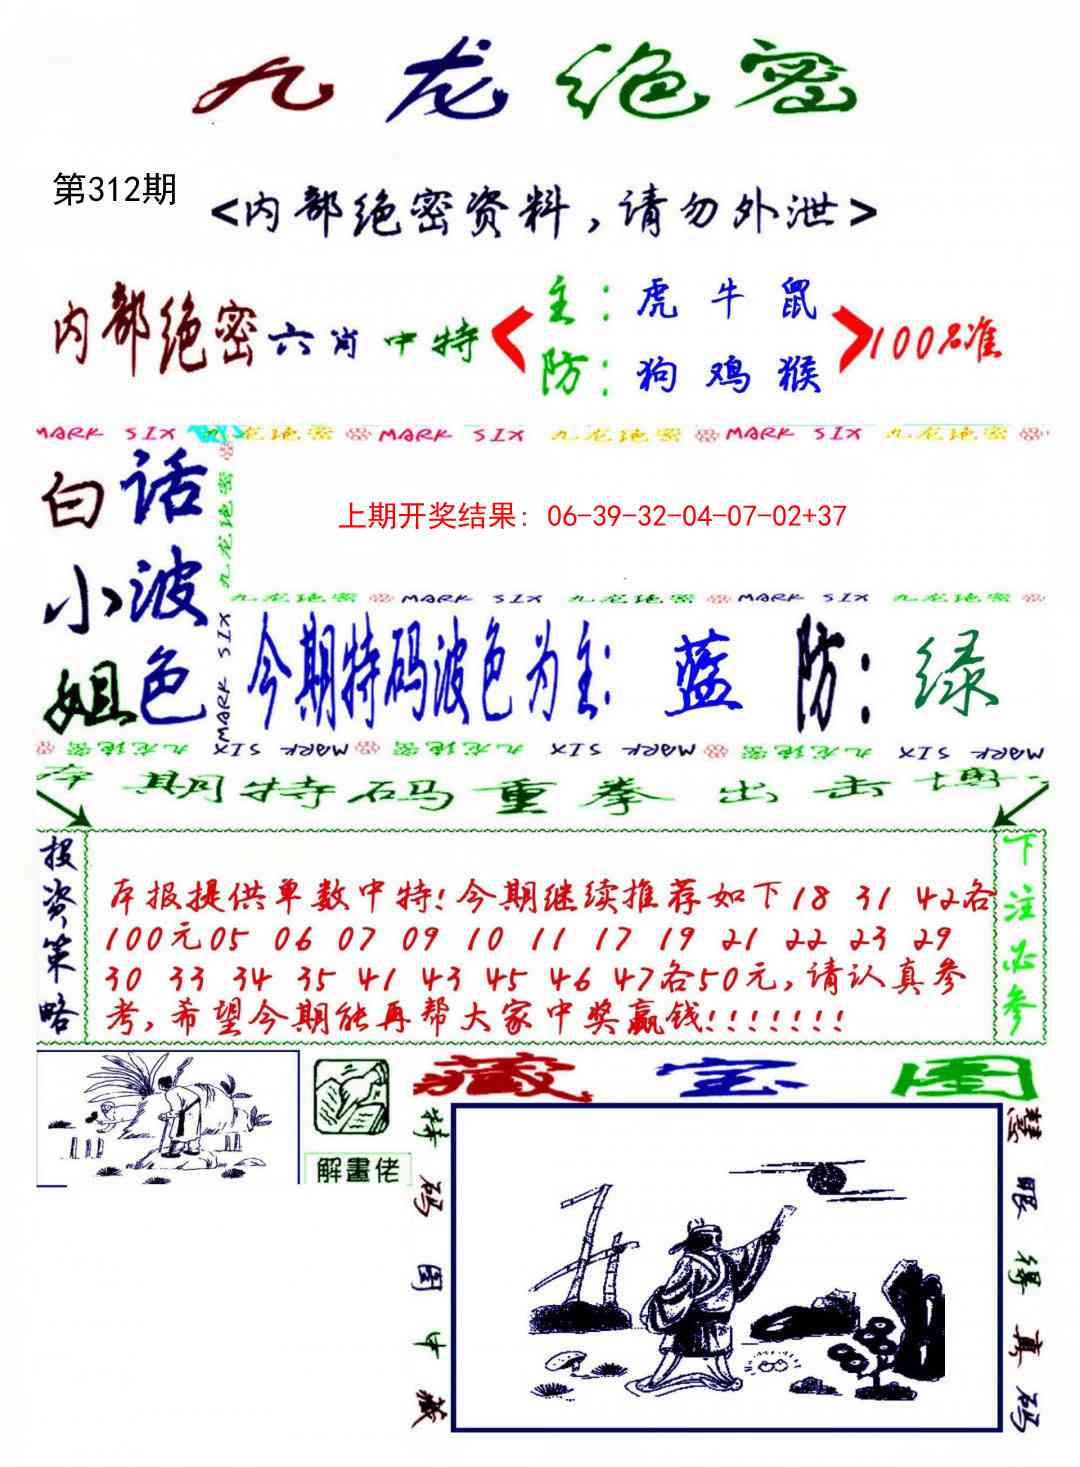 九龙绝密
第312期
<内部绝密资料,请勿外泄>
内部绝密六肖中特
主:虎 牛 鼠
防:狗 鸡 猴
100%准
MARK SIX 九龙绝密 MARK SIX 九龙绝密 MARK SIX 九龙绝密
白话
小波
姐色
九龙绝密
MARK SIX
上期开奖结果: 06-39-32-04-07-02+37
九龙绝密 MARK SIX 九龙绝密 MARK SIX 九龙绝密
今期特码波色为主: 蓝 防: 绿
九龙绝密 MARK SIX 九龙绝密 MARK SIX 九龙绝密 MARK SIX
本期特码重拳出击博
投资策略
本报提供单数中特!今期继续推荐如下18 31 42各
100元05 06 07 09 10 11 17 19 21 22 23 29
30 33 34 35 41 43 45 46 47各50元,请认真参
考,希望今期能再帮大家中奖赢钱!!!!!!!
下注必参
解畫佬
藏宝图
特码图中藏
慧眼得真码